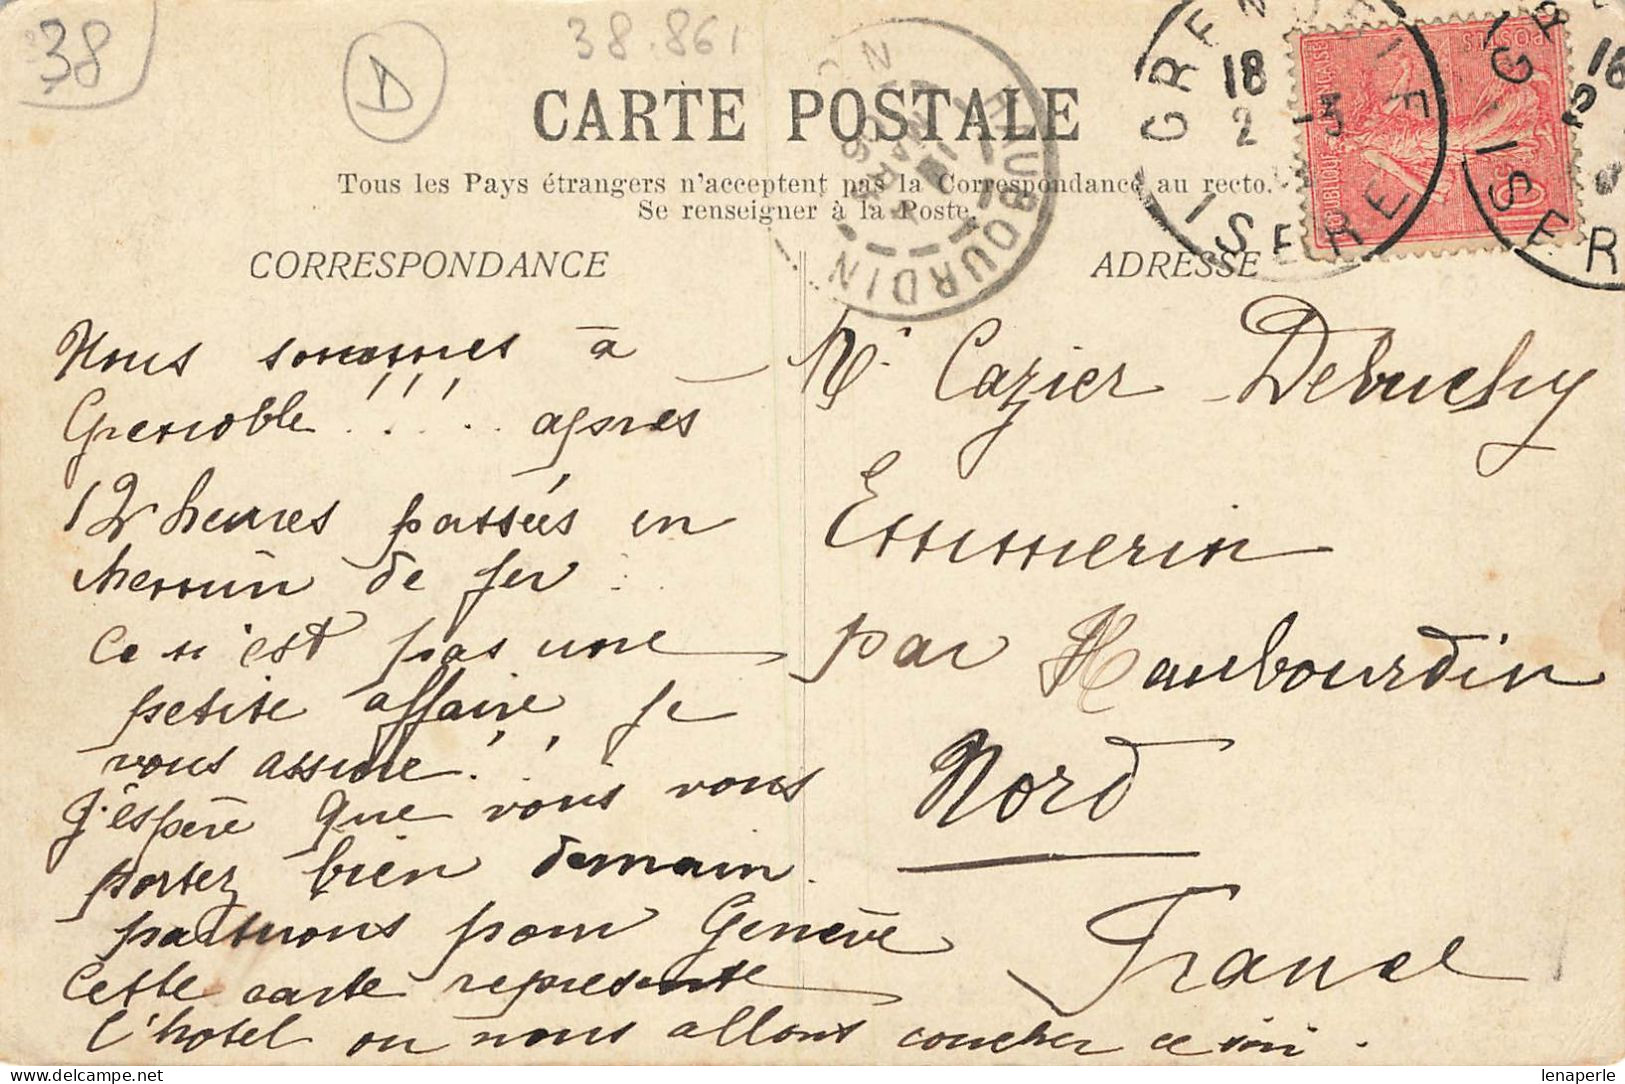 38
D
38.861
CARTE POSTALE
Tous les Pays étrangers n'acceptent pas la Correspondance au recto.
Se renseigner à la Poste.
CORRESPONDANCE
Nous sommes à
Grenoble !!!... après
12 heures passées en
chemin de fer..
Ce n'est pas une
petite affaire je
vous assure!..!
J'espère que vous vous
portez bien demain.
partirons pour Genève
Cette carte represente
l'hotel ou nous allons coucher ce soir.
ADRESSE
Mr Cazier-Debuchy
Emmerin
par Haubourdin
Nord
France
GRENOBLE
18
2
3
ISERE
GR
18
2
ISER
HAUBOURDIN
REPUBLIQUE FRANÇAISE
POSTES
10
lenaperle